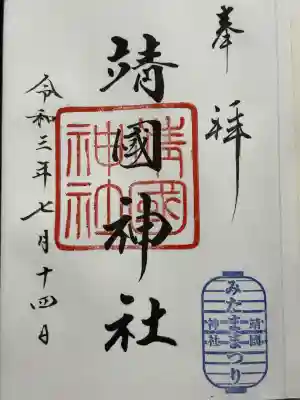 奉拝
靖國神社
靖國
神社
令和三年七月十四日
みたままつり
靖國
神社